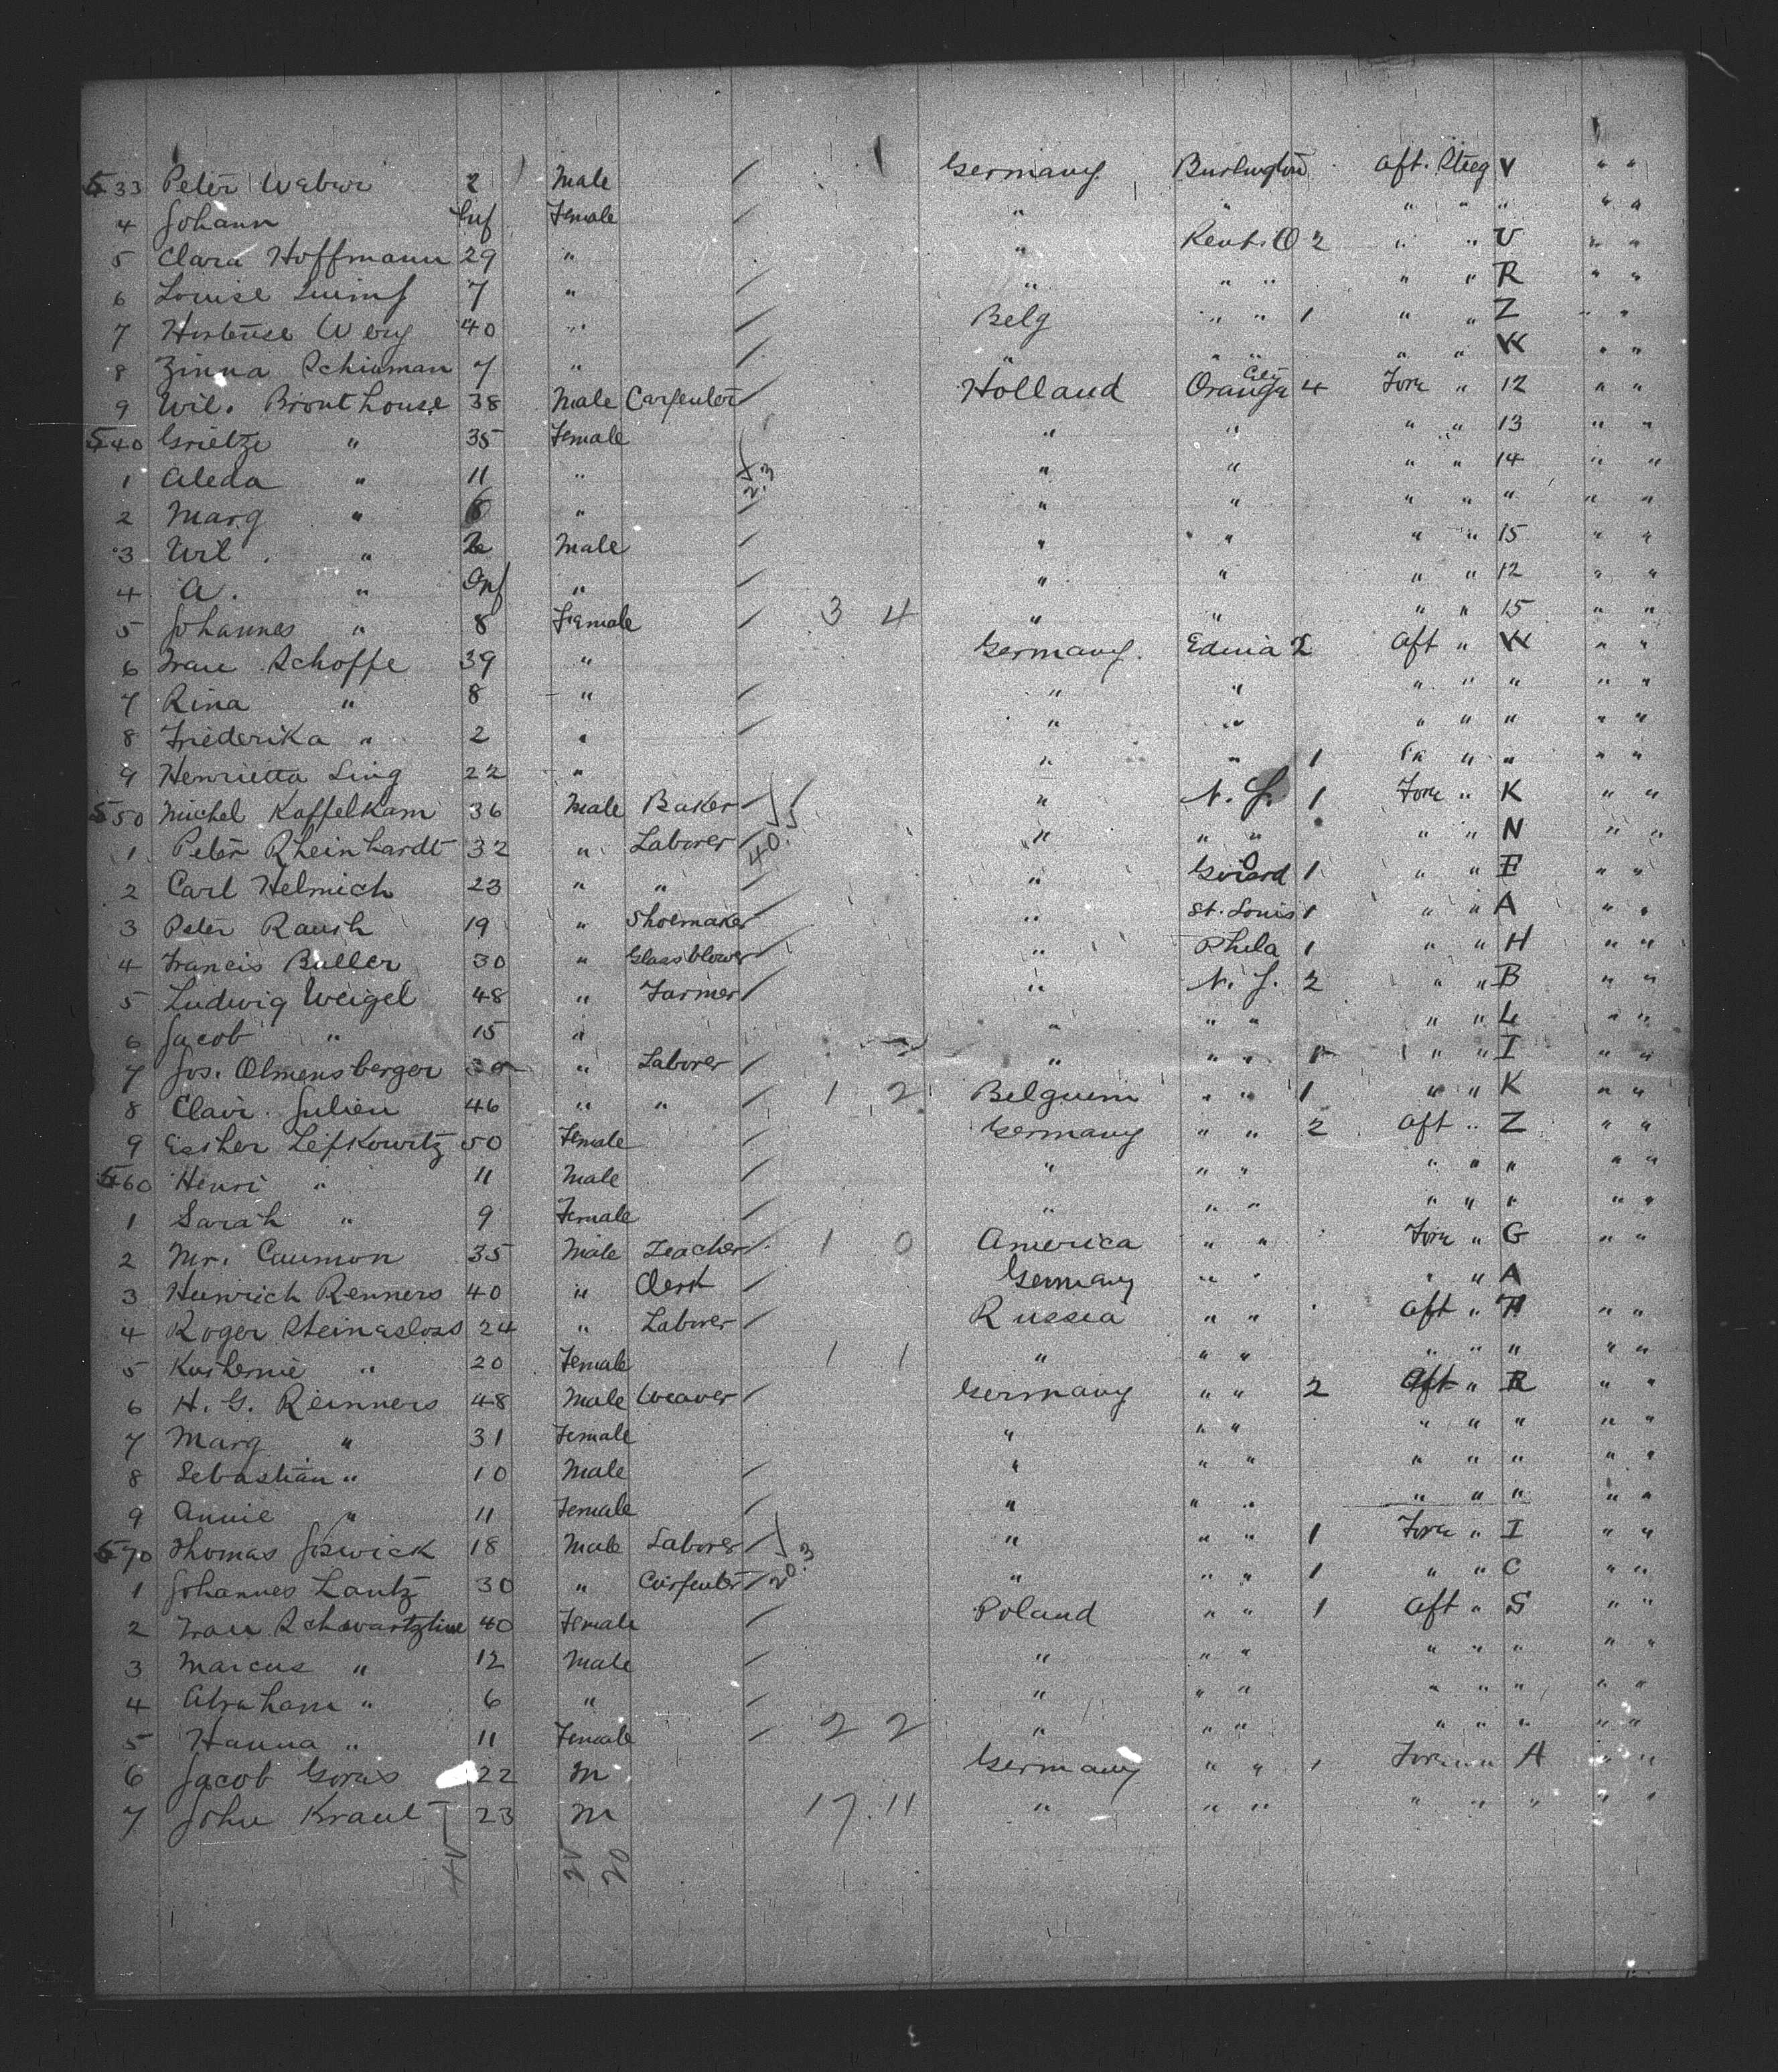 533 Peter Weber 2 Male / Germany Burlington Aft. Steeg V " "
4 Johann Inf Female / " " " " " " "
5 Clara Hoffmann 29 " " Kent. O 2 " " U " "
6 Louise 7 " / " " " " " R " "
7 Hortense Wery 40 " / Belg " " 1 " " Z " "
8 Zinna Schiuman 7 " / " " " " " W " "
9 Wil. Bronthouse 38 Male Carpenter / Holland Orange City 4 Fore " 12 " "
540 Grietze " 35 Female " " " " 13 " "
1 Aleda " 11 " " " " " 14 " "
2 Marg " 8 " / " " " " " " "
3 Wil. " 2 Male / " " " " " 15 " "
4 A. " Inf " / " " " " 12 " "
5 Johannes " 8 Female / 3 4 " " " " 15 " "
6 Frau Schoffe 39 " Germany. Edina 2 Aft " W " "
7 Rina " 8 " / " " " " " " "
8 Friederika " 2 " / " " " " " " "
9 Henrietta Ling 22 " " " 1 " " " "
550 Michel Koffelkam 36 Male Baker / " N. J. 1 Fore " K " "
1 Peter Rheinhardt 32 " Laborer / " " " " " N " "
2 Carl Helmich 23 " " / " Girard 1 " " E " "
3 Peter Raush 19 " Shoemaker / " St. Louis 1 " " A " "
4 Francis Buller 30 " Glassblower / " Phila 1 " " H " "
5 Ludwig Weigel 48 " Farmer / " N. J. 2 " " B " "
6 Jacob " 15 " " " " " " L " "
7 Jos. Olmensberger " Laborer / " " " 1 " " I " "
8 Clair Julien 46 " " / 1 2 Belguim " " 1 " " K " "
9 Esther Lefkowitz 50 Female / Germany " " 2 Aft " Z " "
560 Henri " 11 Male / " " " " " " " "
1 Sarah " 9 Female / " " " " " " " "
2 Mr. Caumon 35 Male Teacher / 1 0 America " " Fore " G " "
3 Heinrich Renners 40 " Clerk / Germany " " " " A
4 Roger Steinasloss 24 " Laborer / Russia " " Aft " H " "
5 Kushernie " 20 Female 1 1 " " " " " " " "
6 H. G. Reinners 48 Male Weaver / Germany " " 2 Aft " R " "
7 Marg " 31 Female " " " " " " " "
8 Sebastian " 10 Male / " " " " " " " "
9 Annie " 11 Female / " " " " " " " "
570 Thomas Joswick 18 Male Laborer / " " " 1 Fore " I " "
1 Johannes Lantz 30 " Carpenter / " " " 1 " " C " "
2 Frau Schwartztine 40 Female / Poland " " 1 Aft " S " "
3 Marcus " 12 Male / " " " " " " " "
4 Abraham " 6 " / " " " " " " " "
5 Hanna " 11 Female / 2 2 " " " " " " " "
6 Jacob Goras 22 M Germany " " 1 Fore " " A " "
7 John Kraut 23 M 17 11 " " " " " " " "
45 25 20